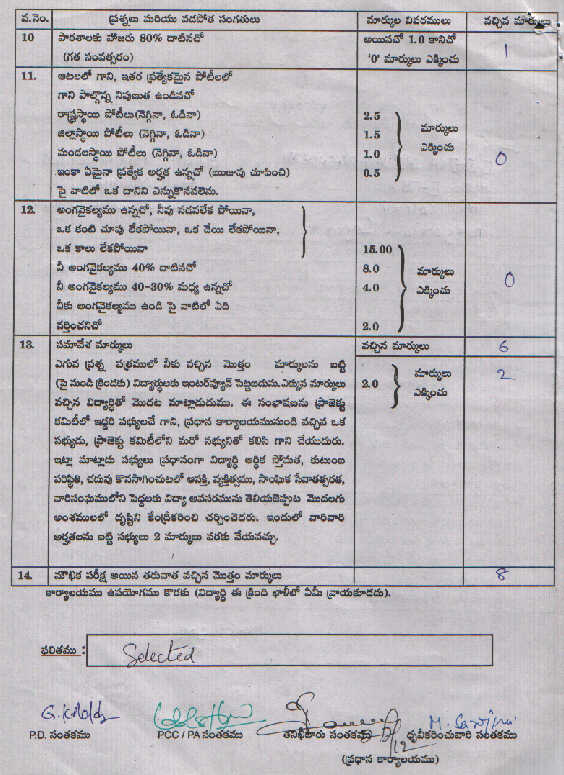 వ.నెం. ప్రశ్నలు మరియు వడపోత సంగతులు మార్కుల వివరములు వచ్చిన మార్కులు
10 పాఠశాలకు హాజరు 80% దాటినచో అయినచో 1.0 కానిచో 1
(గత సంవత్సరం) '0' మార్కులు ఎక్కించు
11. ఆటలలో గాని, ఇతర ప్రత్యేకమైన పోటీలలో
గాని పాల్గొన్న నిపుణత ఉండినచో
రాష్ట్రస్థాయి పోటీలు(నెగ్గినా, ఓడినా) 2.5
జిల్లాస్థాయి పోటీలు (నెగ్గినా, ఓడినా) 1.5 మార్కులు
మండలస్థాయి పోటీలు (నెగ్గినా, ఓడినా) 1.0 ఎక్కించు 0
ఇంకా ఏమైనా ప్రత్యేక అర్హత ఉన్నచో (ఋజువు చూపించి) 0.5
పై వాటిలో ఒక దానిని ఎన్నుకొనవలెను.
12. అంగవైకల్యము ఉన్నచో, నీవు నడవలేక పోయినా,
ఒక కంటి చూపు లేకపోయినా, ఒక చేయి లేకపోయినా,
ఒక కాలు లేకపోయినా 15.00
నీ అంగవైకల్యము 40% దాటినచో 8.0 మార్కులు
నీ అంగవైకల్యము 40-30% మధ్య ఉన్నచో 4.0 ఎక్కించు 0
నీకు అంగవైకల్యము ఉండి పై వాటిలో ఏది
వర్తించనిచో 2.0
13. సమావేశ మార్కులు వచ్చిన మార్కులు 6
ఎగువ ప్రశ్న పత్రములో నీకు వచ్చిన మొత్తం మార్కులను బట్టి మార్కులు
(పై నుండి క్రిందకు) విద్యార్థులకు ఇంటర్వ్యూన్ పెట్టబయును. ఎక్కువ మార్కులు 2.0 ఎక్కించు 2
వచ్చిన విద్యార్థితో మొదట మాట్లాడుదుము. ఈ సంభాషణను ప్రాజెక్టు
కమిటీలో ఇద్దరి సభ్యులచే గాని, ప్రధాన కార్యాలయమునుండి వచ్చిన ఒక
సభ్యుడు, ప్రాజెక్టు కమిటీలోని మరో సభ్యునితో కలిసి గాని చేయుదురు.
ఇట్లా మాట్లాడు సభ్యులు ప్రధానంగా విద్యార్థి ఆర్థిక స్తోమత, కుటుంబ
పరిస్థితి, చదువు కొనసాగించుటలో ఆసక్తి, వ్యక్తిత్వము, సాంఘిక సేవాతత్పరత,
వారిసంఘములోని పెద్దలకు విద్యా అవసరమును తెలియజెప్పుట మొదలగు
అంశములలో దృష్టిని కేంద్రీకరించి చర్చించెదరు. ఇందులో వారివారి
అర్హతలను బట్టి సభ్యులు 2 మార్కులు వరకు వేయవచ్చు.
14. మౌఖిక పరీక్ష అయిన తరువాత వచ్చిన మొత్తం మార్కులు 8
కార్యాలయము ఉపయోగము కొరకు (విద్యార్థి ఈ క్రింది ఖాళీలో ఏమీ వ్రాయకూడదు).
ఫలితము : Selected
P.D. సంతకము PCC / PA సంతకము తనిఖీదారు సంతకము ధృవీకరించువారి సంతకము
(ప్రధాన కార్యాలయము)